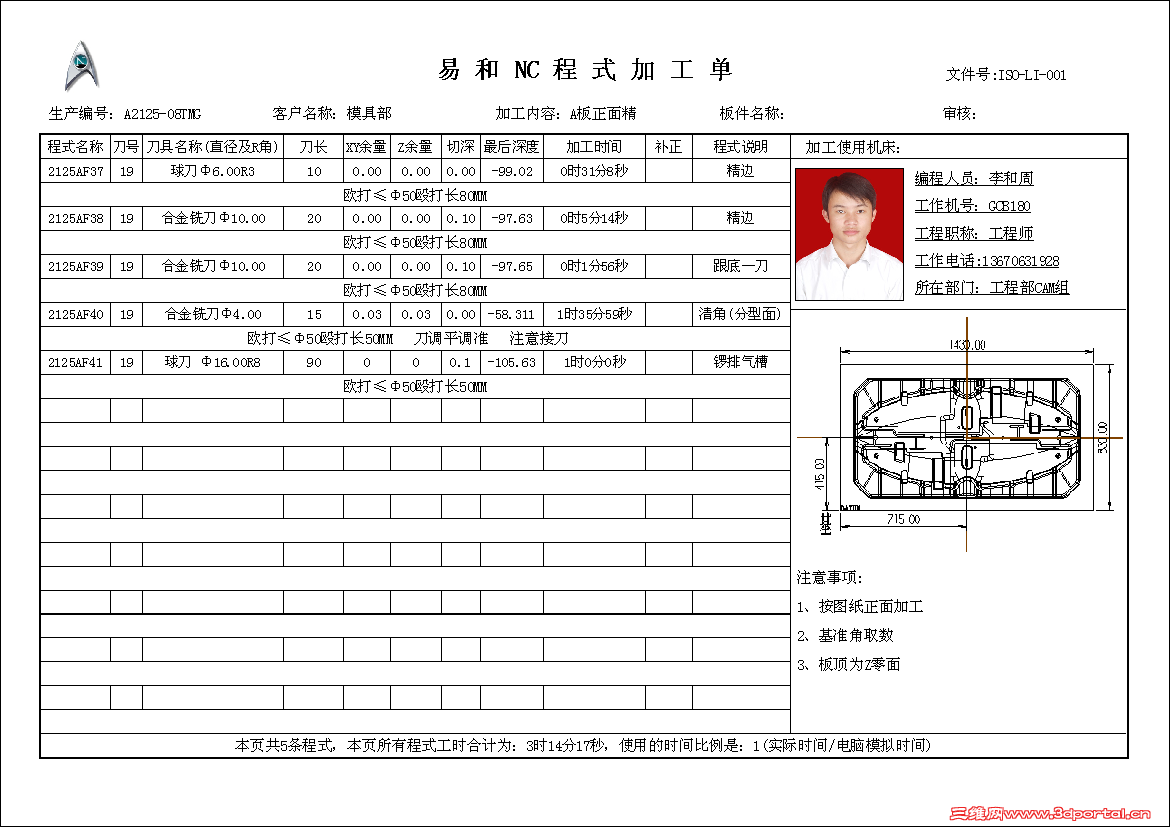 易和NC程式加工单
文件号:ISO-LI-001
生产编号: A2125-08TMG 客户名称: 模具部 加工内容: A板正面精 板件名称: 审核:
程式名称 刀号 刀具名称(直径及R角) 刀长 XY余量 Z余量 切深 最后深度 加工时间 补正 程式说明 加工使用机床:
2125AF37 19 球刀Φ6.00R3 10 0.00 0.00 0.00 -99.02 0时31分8秒 精边
欧打≤Φ50殴打长80MM
2125AF38 19 合金铣刀Φ10.00 20 0.00 0.00 0.10 -97.63 0时5分14秒 精边
欧打≤Φ50殴打长80MM
2125AF39 19 合金铣刀Φ10.00 20 0.00 0.00 0.10 -97.65 0时1分56秒 跟底一刀
欧打≤Φ50殴打长80MM
2125AF40 19 合金铣刀Φ4.00 15 0.03 0.03 0.00 -58.311 1时35分59秒 清角(分型面)
欧打≤Φ50殴打长50MM 刀调平调准 注意接刀
2125AF41 19 球刀 Φ16.00R8 90 0 0 0.1 -105.63 1时0分0秒 锣排气槽
欧打≤Φ50殴打长50MM
编程人员: 李和周
工作机号: GCB180
工程职称: 工程师
工作电话:13670631928
所在部门: 工程部CAM组
1430.00
830.00
415.00
715.00
DATUM
基准
注意事项:
1、按图纸正面加工
2、基准角取数
3、板顶为Z零面
本页共5条程式, 本页所有程式工时合计为: 3时14分17秒, 使用的时间比例是: 1(实际时间/电脑模拟时间)
三维网www.3dportal.cn